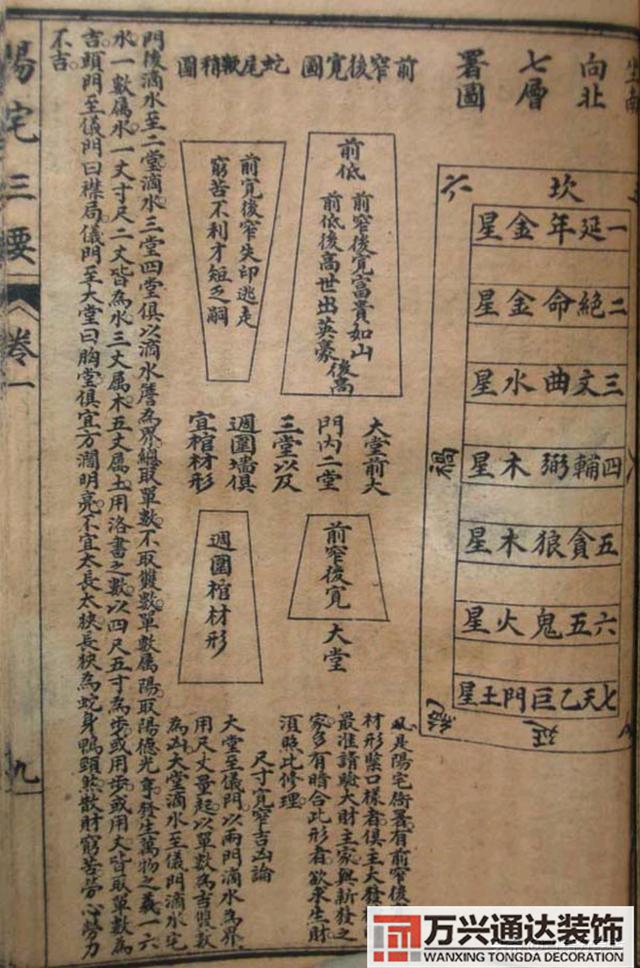 坐南
向北
七層
署圖
坎
六
禍
絕
延
一延年金星
二絕命金星
三文曲水星
四輔弼木星
五貪狼木星
六五鬼火星
七天乙巨門土星
前窄後寬圖
蛇尾鞭稍圖
前低
前窄後寬富貴如山
前低後高世出英豪
後高
前寬後窄失印逃走
窮苦不利才短乏嗣
大堂前大
門內二堂
三堂以及
週圍墻俱
宜棺材形
前窄後寬
大堂
週圍棺材形
凡是陽宅衙署有前窄後
材形紫口樣者俱主大發
最准請驗大財主家與新發之
家多有暗合此形者欲求生財
須照此修理
尺寸寬窄吉凶論
大堂至儀門以兩門滴水為界
用尺丈量起以單數為吉雙數
為凶大堂滴水至儀門滴水宅
門後滴水至二堂滴水三堂四堂俱以滴水簷為界總取單數不取雙數單數屬陽取陽德光亨發生萬物之義一六
水一數屬水一丈寸尺二丈皆為水三丈屬木五丈屬土用洛書之數以四尺五寸為步或用步或用丈皆取單數為
吉頭門至儀門曰襟局儀門至大堂曰胸堂俱宜方濶明亮不宜太長太狹長狹為蛇身鴨頸煞散財窮苦勞心勞力
不吉
陽宅三要
卷一
九
万兴通达装饰
WANXING TONGDA DECORATION